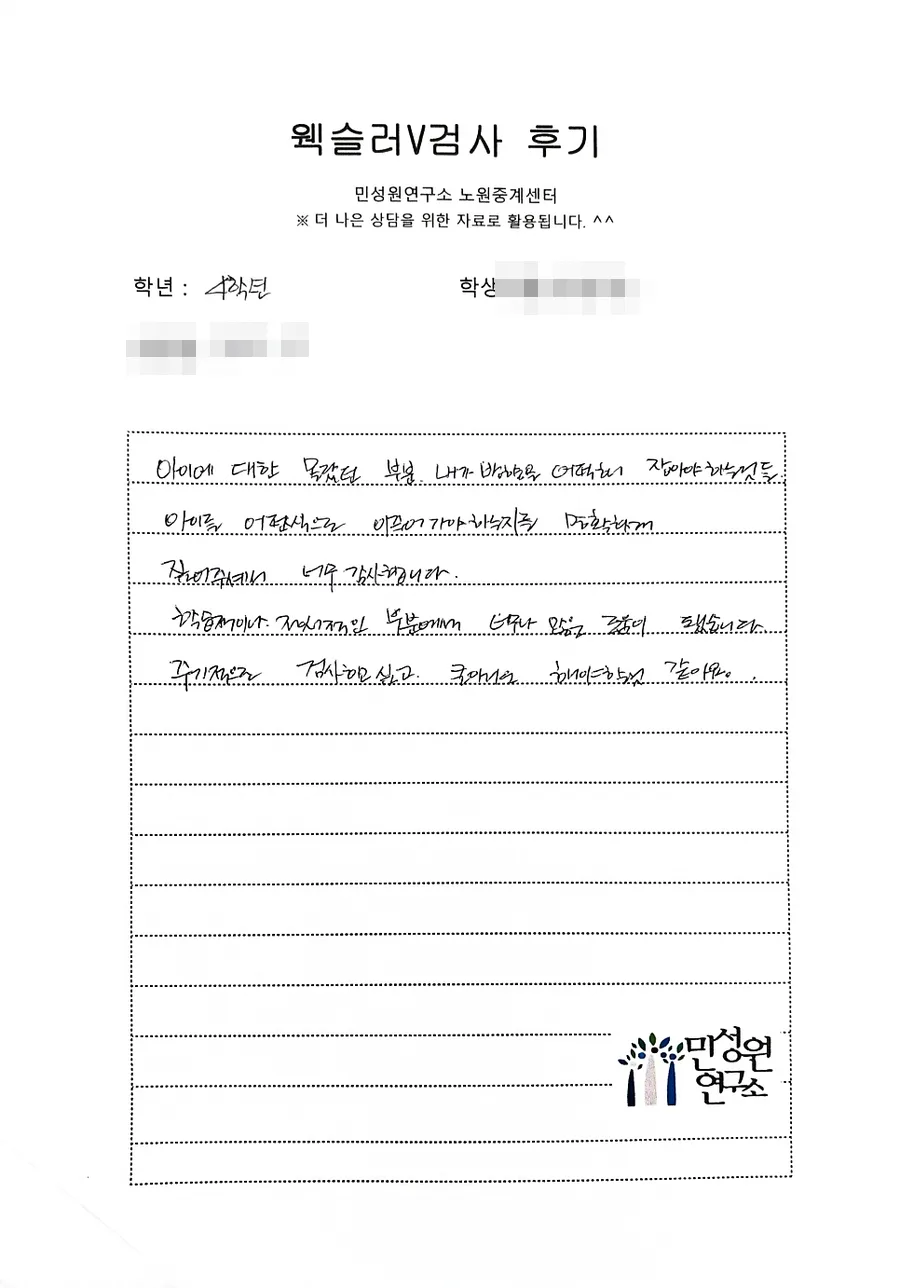 웩슬러V검사 후기
민성원연구소 노원중계센터
※ 더 나은 상담을 위한 자료로 활용됩니다. ^^
학년 : 4학년
학생
아이에 대한 몰랐던 부분. 내가 방향을 어떻게 잡아야 하는것들.
아이를 어떤식으로 이끌어 가야 하는지를 명확하게
짚어주셔서 너무 감사합니다.
학습적이나. 정서적인 부분에서 너무나 많은 도움이 됐습니다.
주기적으로 검사하고 싶고. 해야할것 같아요.
민성원
연구소